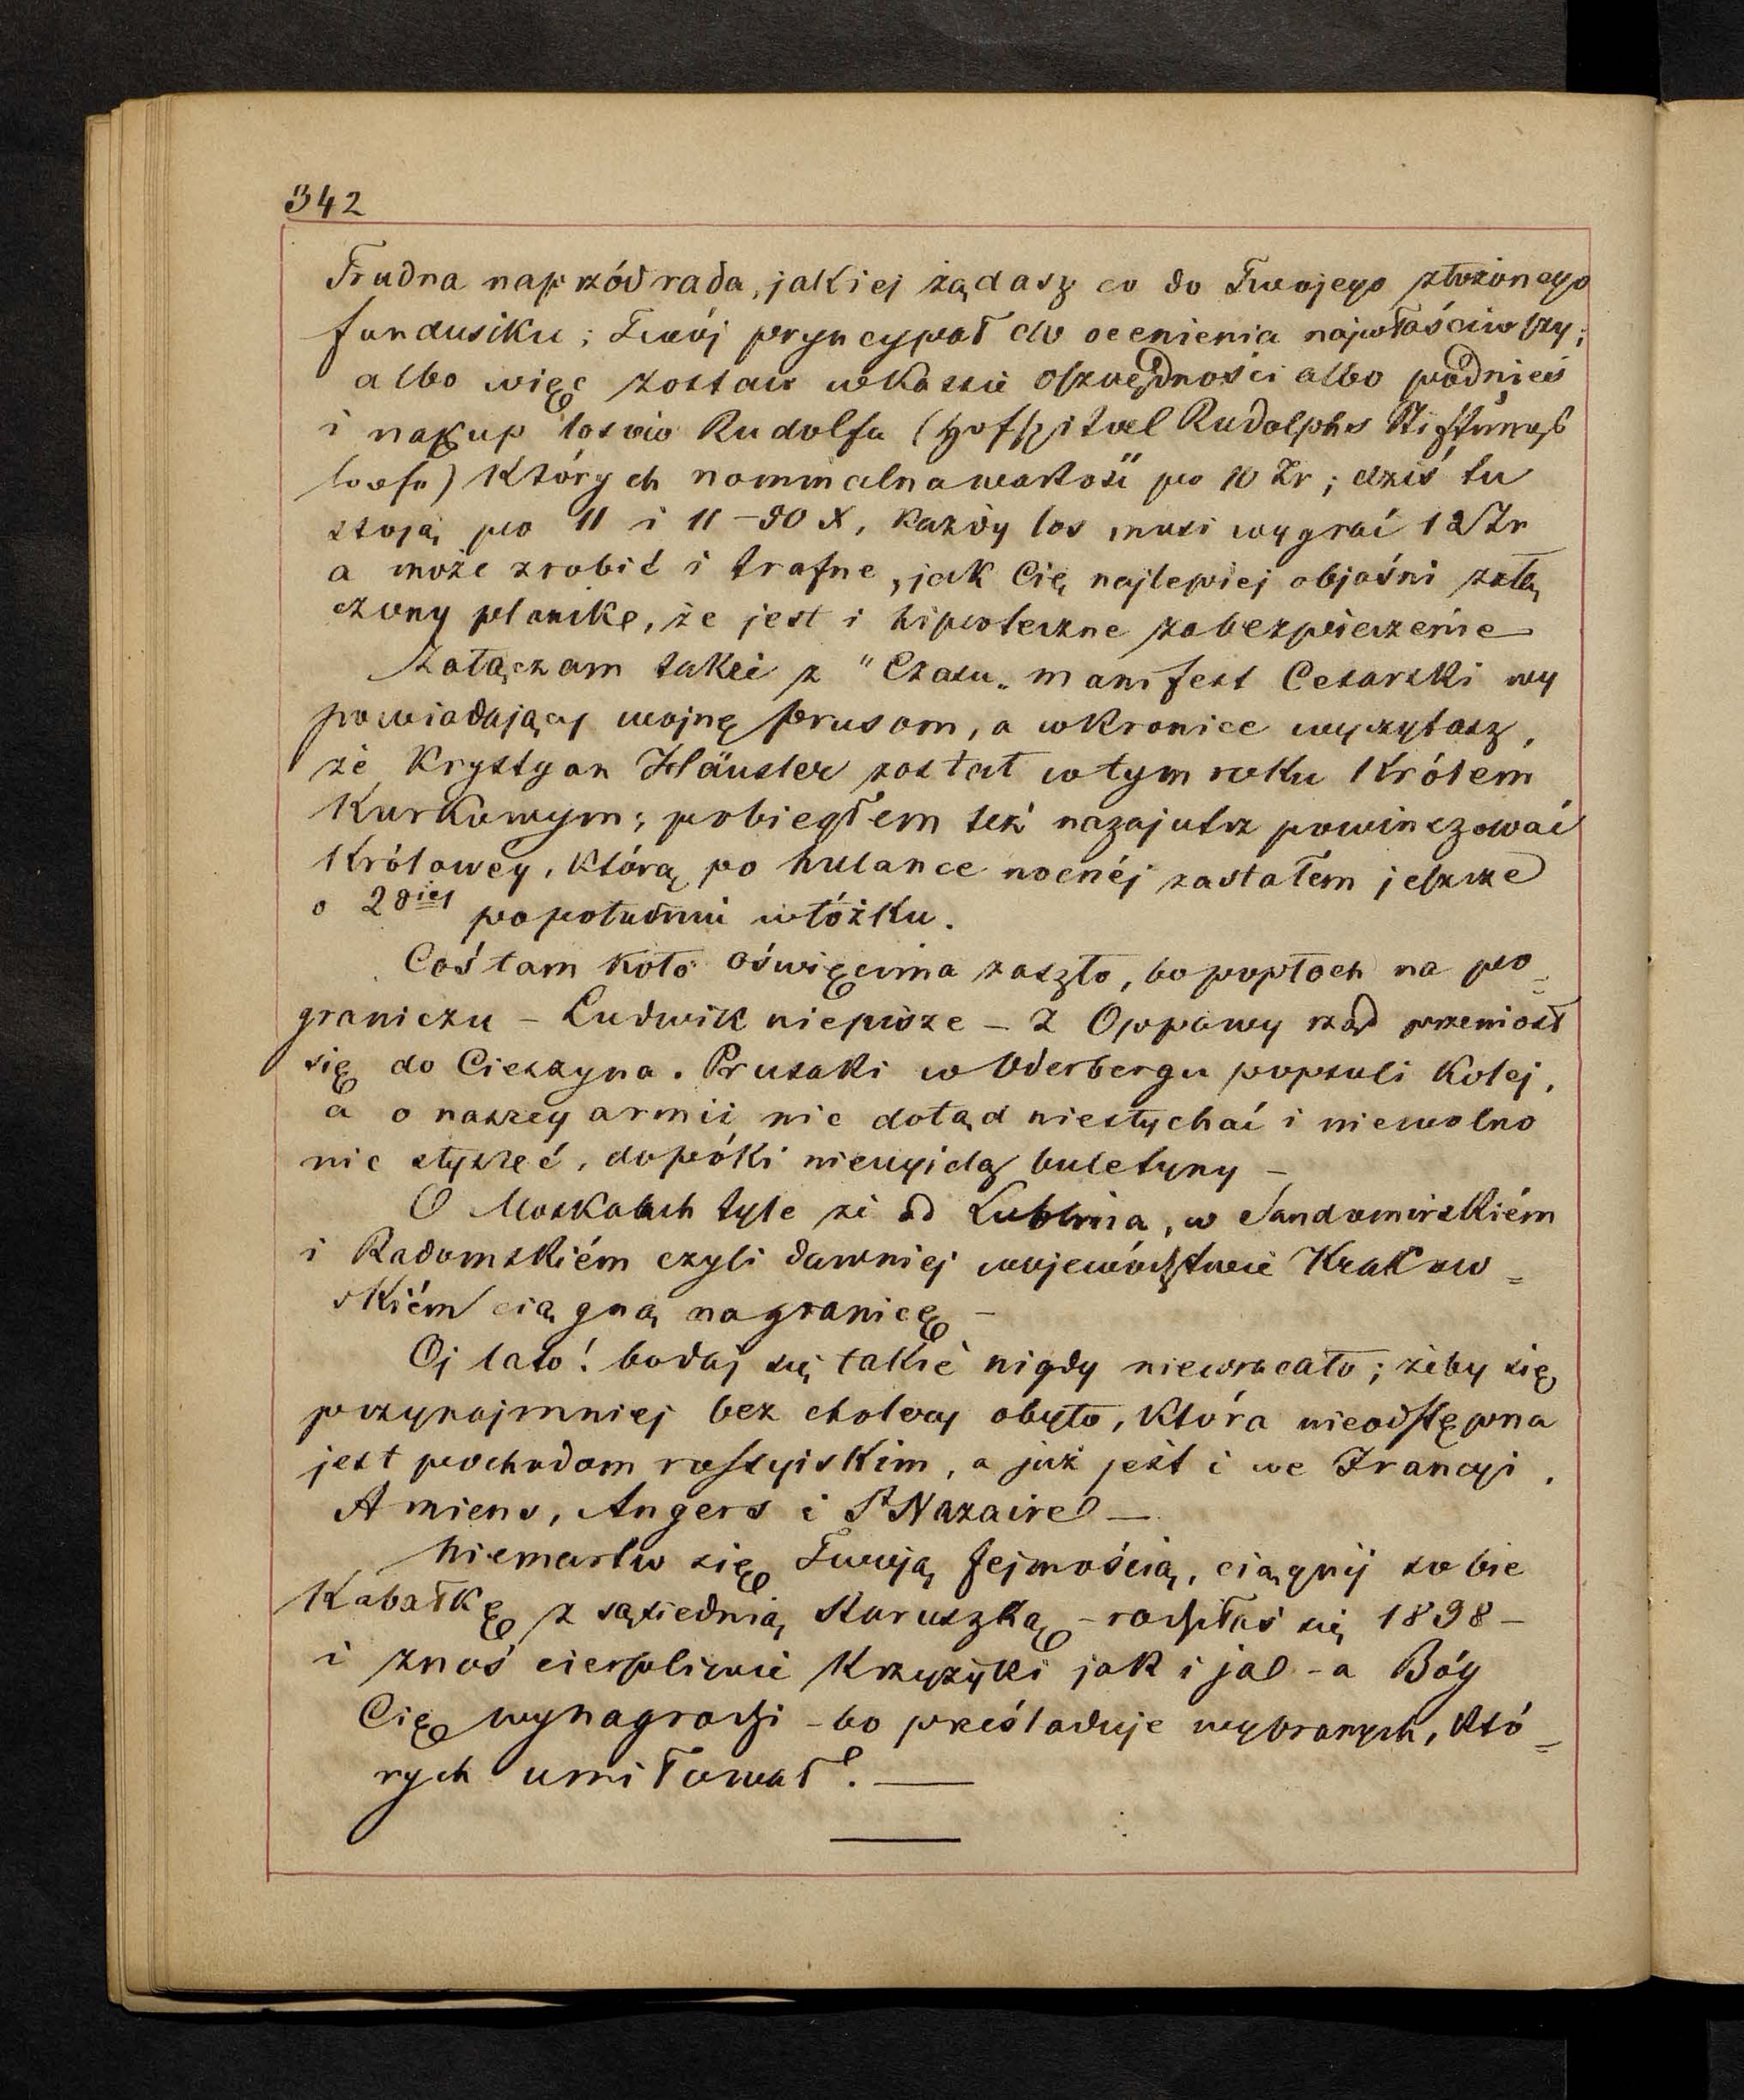 342
Trudna naprzód rada, jakiej żądasz co do Twojego złożonego
fundusiku; Twój pryncypał do ocenienia najwłaściwszy;
albo więc zostaw w Kassie oszczędności albo podnieś
i nakup losów Rudolfa (Hofspital Rudolphs Stiftungs
loose) których nominalna wartość po 10 Zr; dziś tu
stoją po 11 i 11-50 X, Każdy los musi wygrać 12 Zr
a może zrobić i trafne, jak Cię najlepiej objaśni załą
czony planik, że jest i hipoteczne zabezpieczenie
Załączam takei z "Czasu" manifest Cesarski wy
powiadający wojnę Prusom, a w Kronice wyczytasz,
że Krystyan Häusler został w tym roku Królem
Kurkowym; pobiegłem też nazajutrz powinczować
Królowey, którą po hulance nocnéj zastałem jeszcze
o 2giej popołudniu w łóżku.
Coś tam koło Oświęcima zaszło, bo popłoch na po=
graniczu – Ludwik niepisze – Z Oppawy rząd przeniosł
się do Cieszyna. Prusaki w Oderbergu popsuli Kolej,
a o naszey armii nic dotąd niesłychać i niewolno
nic słyszeć, dopóki niewyidą buletyny –
O Moskalach tyle że od Lublina, w Sandomirskiém
i Radomskiém czyli dawniej województwie Krakow=
skiém ciągną na granicę –
Oj lato! bodaj się takie nigdy niewracało; żeby się
przynajmniej bez cholery obyło, która nieodstępna
jest pochodom rossyiskim, a już jest i we Francyi,
Amiens, Angers i St Nazaire –
Niemartw się Twoją Jejmością, ciągnij sobie
Kabałkę z sąsiednią Staruszką – rodziłaś się 1898 –
i znoś cierpliwie Krzyżyki jak i ja – a Bóg
Cię wynagrodzi – bo prześladuje wybranych, któ=
rych umiłował. —